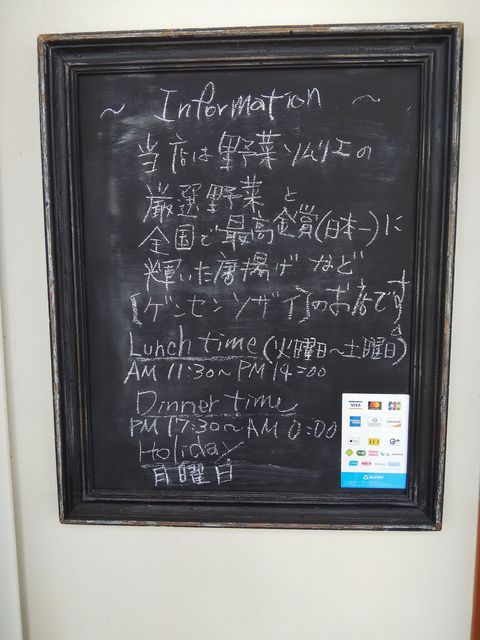 ~ Information ~
当店は野菜ソムリエの
厳選野菜と
全国で最高金賞(日本一)に
輝いた唐揚げなど
[ゲンセンソザイ]のお店です。
Lunch time (火曜日~土曜日)
AM 11:30~PM 14:00
Dinner time
PM 17:30~AM 0:00
Holiday
月曜日
VISA
AirPAY